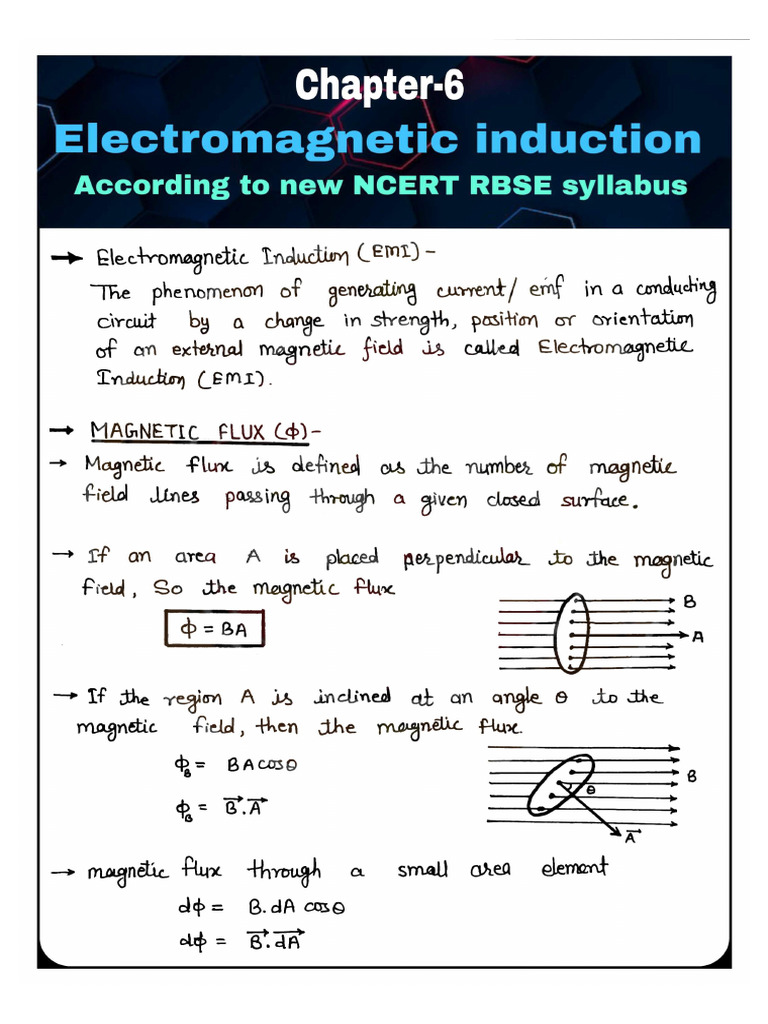 Chapter-6
Electromagnetic induction
According to new NCERT RBSE syllabus
→ Electromagnetic Induction (EMI) -
The phenomenon of generating current/ emf in a conducting
circuit by a change in strength, position or orientation
of an external magnetic field is called Electromagnetic
Induction (EMI).
→ MAGNETIC FLUX (ϕ) -
→ Magnetic flux is defined as the number of magnetic
field lines passing through a given closed surface.
→ If an area A is placed perpendicular to the magnetic
field, So the magnetic flux
ϕ = BA
B
A
→ If the region A is inclined at an angle θ to the
magnetic field, then the magnetic flux.
ϕ_B = BA cosθ
ϕ_B = B⃗.A⃗
B
θ
A⃗
→ magnetic flux through a small area element
dϕ = B.dA cosθ
dϕ = B⃗.dA⃗